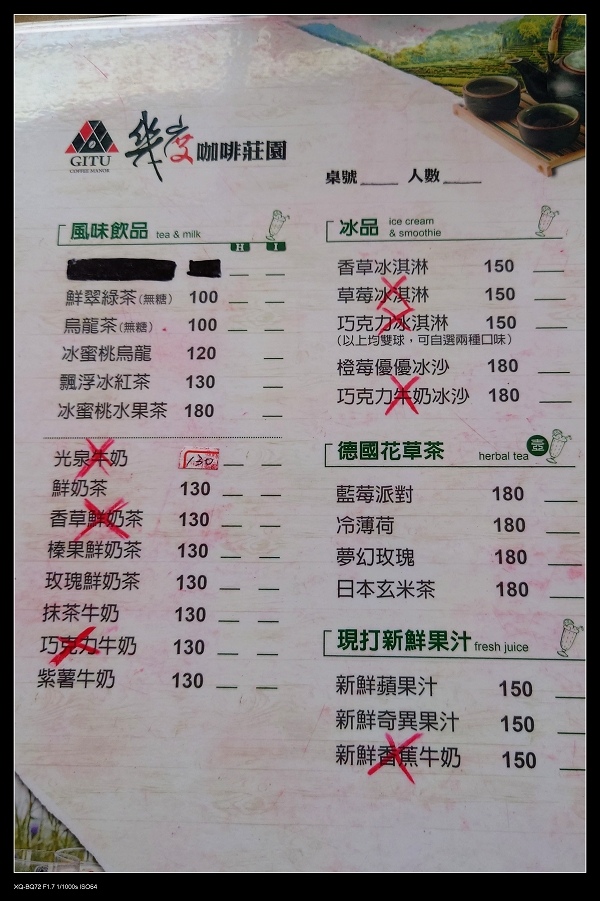 GITU
COFFEE MANOR
幾度咖啡莊園
桌號____ 人數____
風味飲品 tea & milk
H I
鮮翠綠茶(無糖) 100
烏龍茶(無糖) 100
冰蜜桃烏龍 120
飄浮冰紅茶 130
冰蜜桃水果茶 180
光泉牛奶 130
鮮奶茶 130
香草鮮奶茶 130
榛果鮮奶茶 130
玫瑰鮮奶茶 130
抹茶牛奶 130
巧克力牛奶 130
紫薯牛奶 130
冰品 ice cream & smoothie
香草冰淇淋 150
草莓冰淇淋 150
巧克力冰淇淋 150
(以上均雙球，可自選兩種口味)
橙莓優優冰沙 180
巧克力牛奶冰沙 180
德國花草茶 herbal tea 壺
藍莓派對 180
冷薄荷 180
夢幻玫瑰 180
日本玄米茶 180
現打新鮮果汁 fresh juice
新鮮蘋果汁 150
新鮮奇異果汁 150
新鮮香蕉牛奶 150
XQ-BQ72 F1.7 1/1000s ISO64